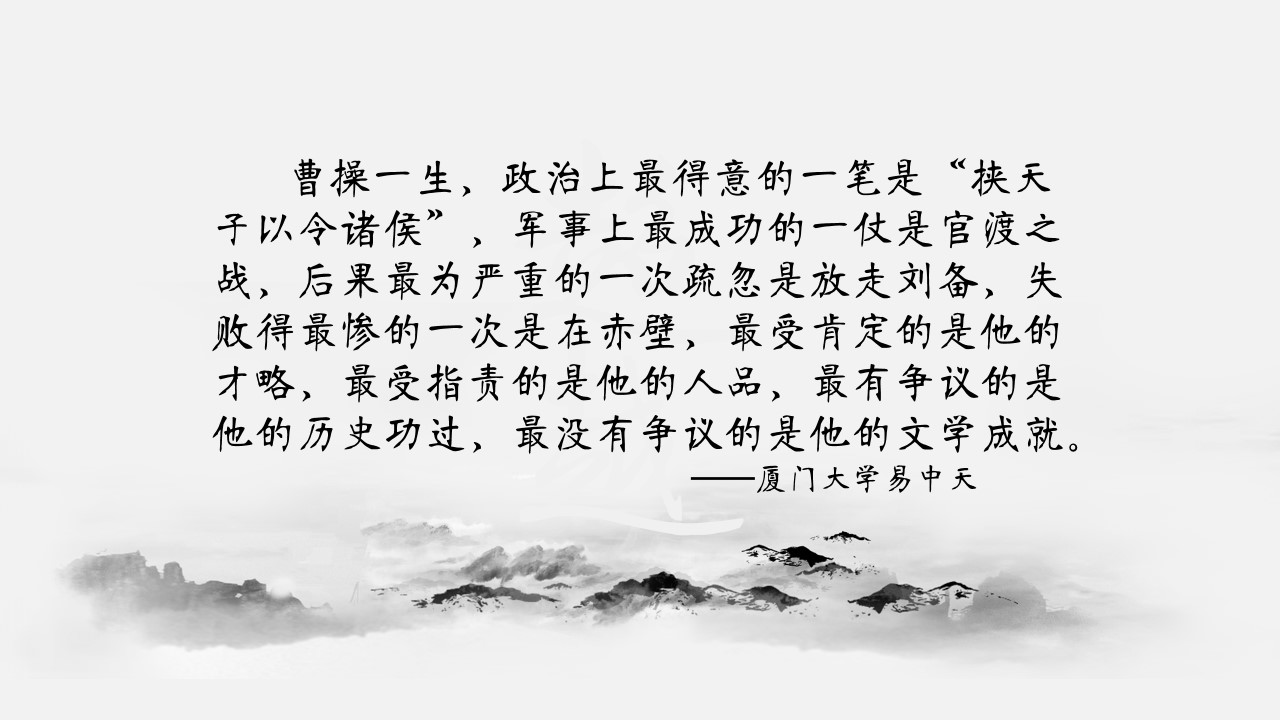 曹操一生，政治上最得意的一笔是“挟天
子以令诸侯”，军事上最成功的一仗是官渡之
战，后果最为严重的一次疏忽是放走刘备，失
败得最惨的一次是在赤壁，最受肯定的是他的
才略，最受指责的是他的人品，最有争议的是
他的历史功过，最没有争议的是他的文学成就。
——厦门大学易中天